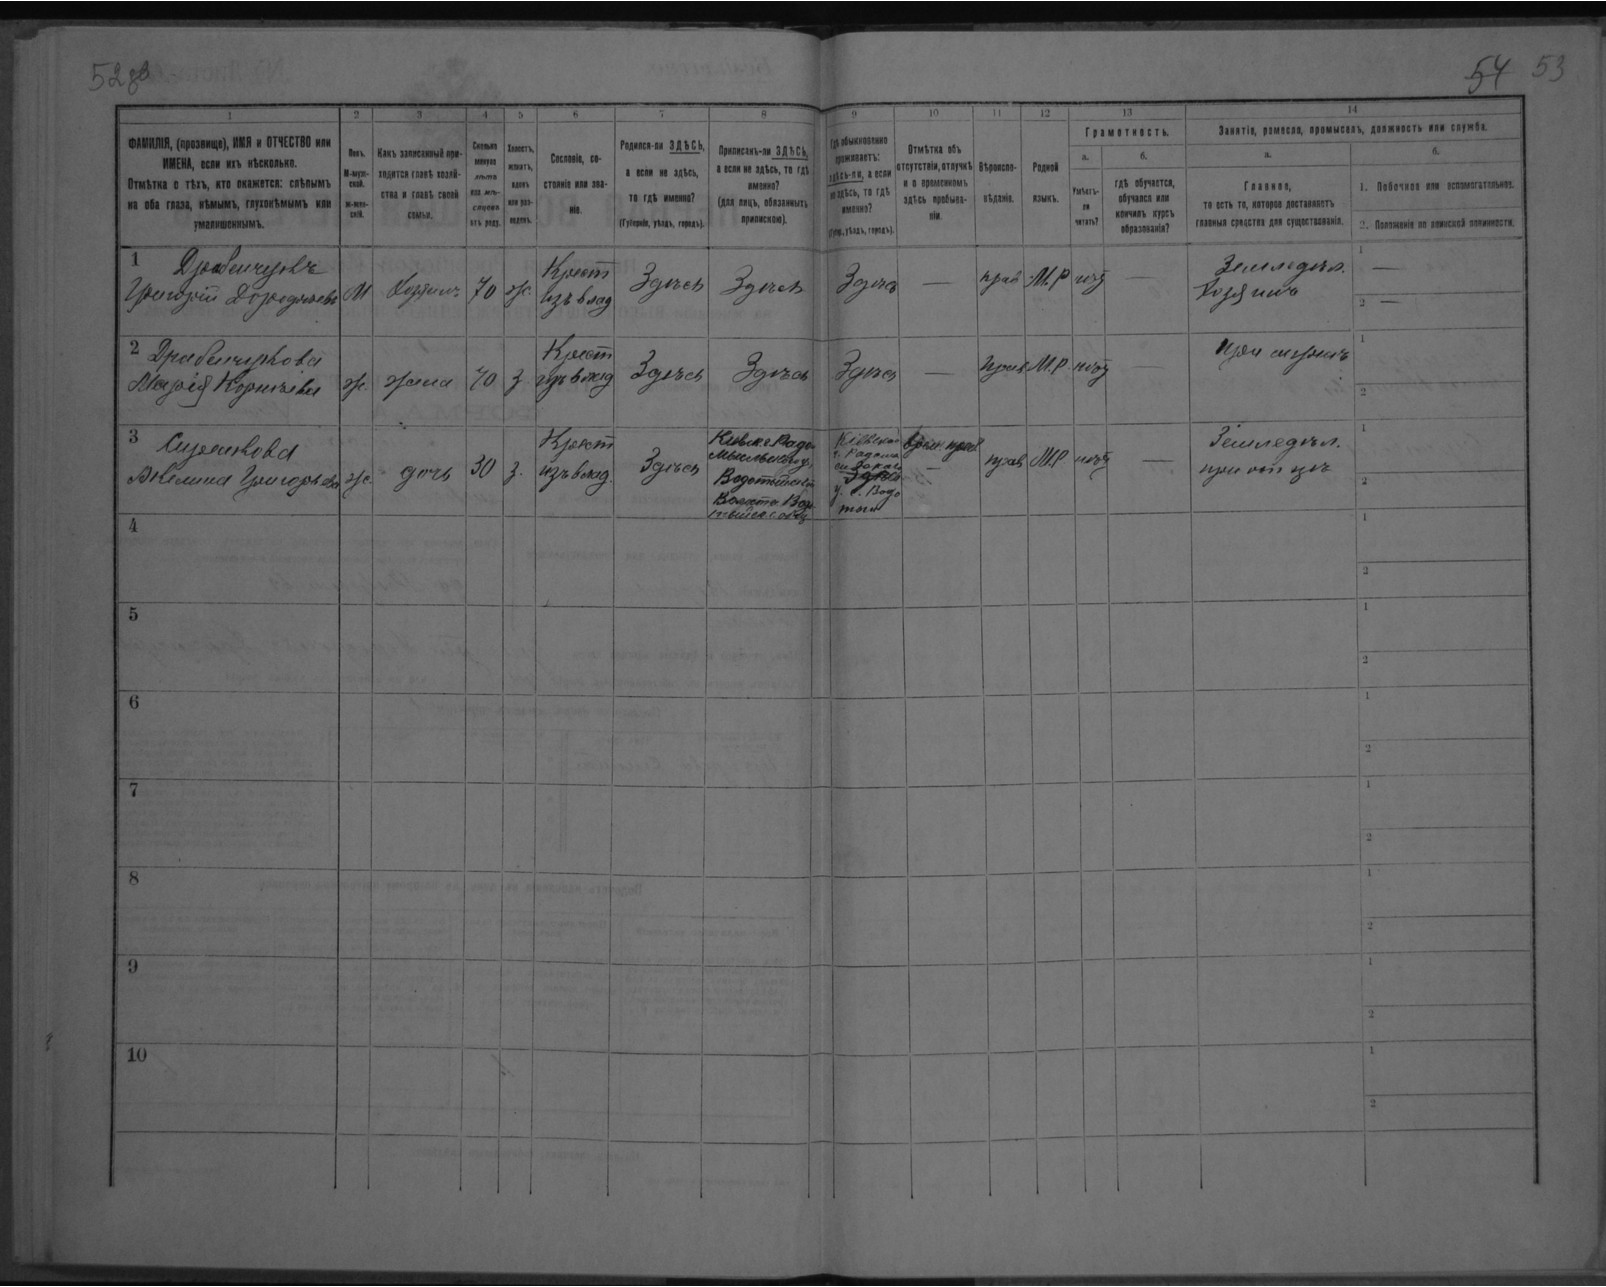 52об
54 53
1 2 3 4 5 6 7 8 9 10 11 12 13 14
ФАМИЛІЯ, (прозвище), ИМЯ и ОТЧЕСТВО или
ИМЕНА, если ихъ нѣсколько.
Отмѣтка о тѣхъ, кто окажется: слѣпымъ
на оба глаза, нѣмымъ, глухонѣмымъ или
умалишеннымъ.
Полъ.
М-муж-
ской.
Ж-жен-
скій.
Какъ записанный при-
ходится главѣ хозяй-
ства и главѣ своей
семьи.
Сколько
минуло
лѣтъ
или мѣ-
сяцевъ
отъ роду.
Холостъ,
женатъ,
вдовъ
или раз-
веденъ.
Сословіе, со-
стояніе или зва-
ніе.
Родился-ли ЗДѢСЬ,
а если не здѣсь,
то гдѣ именно?
(Губернія, уѣздъ, городъ).
Приписанъ-ли ЗДѢСЬ,
а если не здѣсь, то гдѣ
именно?
(для лицъ, обязанныхъ
припискою).
Гдѣ обыкновенно
проживаетъ:
здѣсь-ли, а если
не здѣсь, то гдѣ
именно?
(Губер., уѣздъ, городъ).
Отмѣтка объ
отсутствіи, отлучкѣ
и о временномъ
здѣсь пребыва-
ніи.
Вѣроиспо-
вѣданіе.
Родной
языкъ.
Грамотность.
а.
Умѣетъ-
ли
читать?
б.
гдѣ обучается,
обучался или
кончилъ курсъ
образованія?
Занятія, ремесло, промыселъ, должность или служба.
а.
Главное,
то есть то, которое доставляетъ
главныя средства для существованія.
б.
1. Побочное или вспомогательное.
2. Положеніе по воинской повинности.
1
Григорій М Хозяинъ 70 ж. Крест изъ влад Здѣсь Здѣсь Здѣсь — прав М.Р нѣтъ — Земледѣл. Хозяинъ 1 — 2 —
2 Драбенчукова
Марія ж. жена 70 з. Крест изъ влад Здѣсь Здѣсь Здѣсь — прав М.Р. нѣтъ — при мужѣ 1 2
3
Григорьева ж. дочь 30 з. Крест изъ влад. Здѣсь
прав М.Р нѣтъ — Земледѣл. при отцѣ 1 2
4 1 2
5 1 2
6 1 2
7 1 2
8 1 2
9 1 2
10 1 2